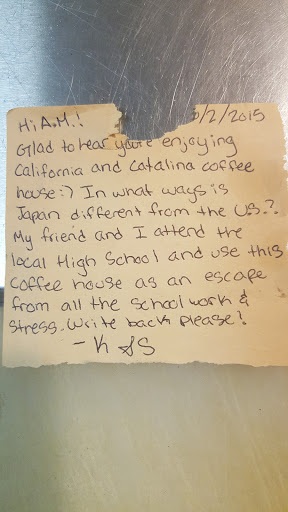 Hi A.M.! /2/2015
Glad to hear you're enjoying
California and Catalina coffee
house:) In what ways is
Japan different from the U.S.?
My friend and I attend the
local High School and use this
coffee house as an escape
from all the school work &
stress. Write back please!
- K &S